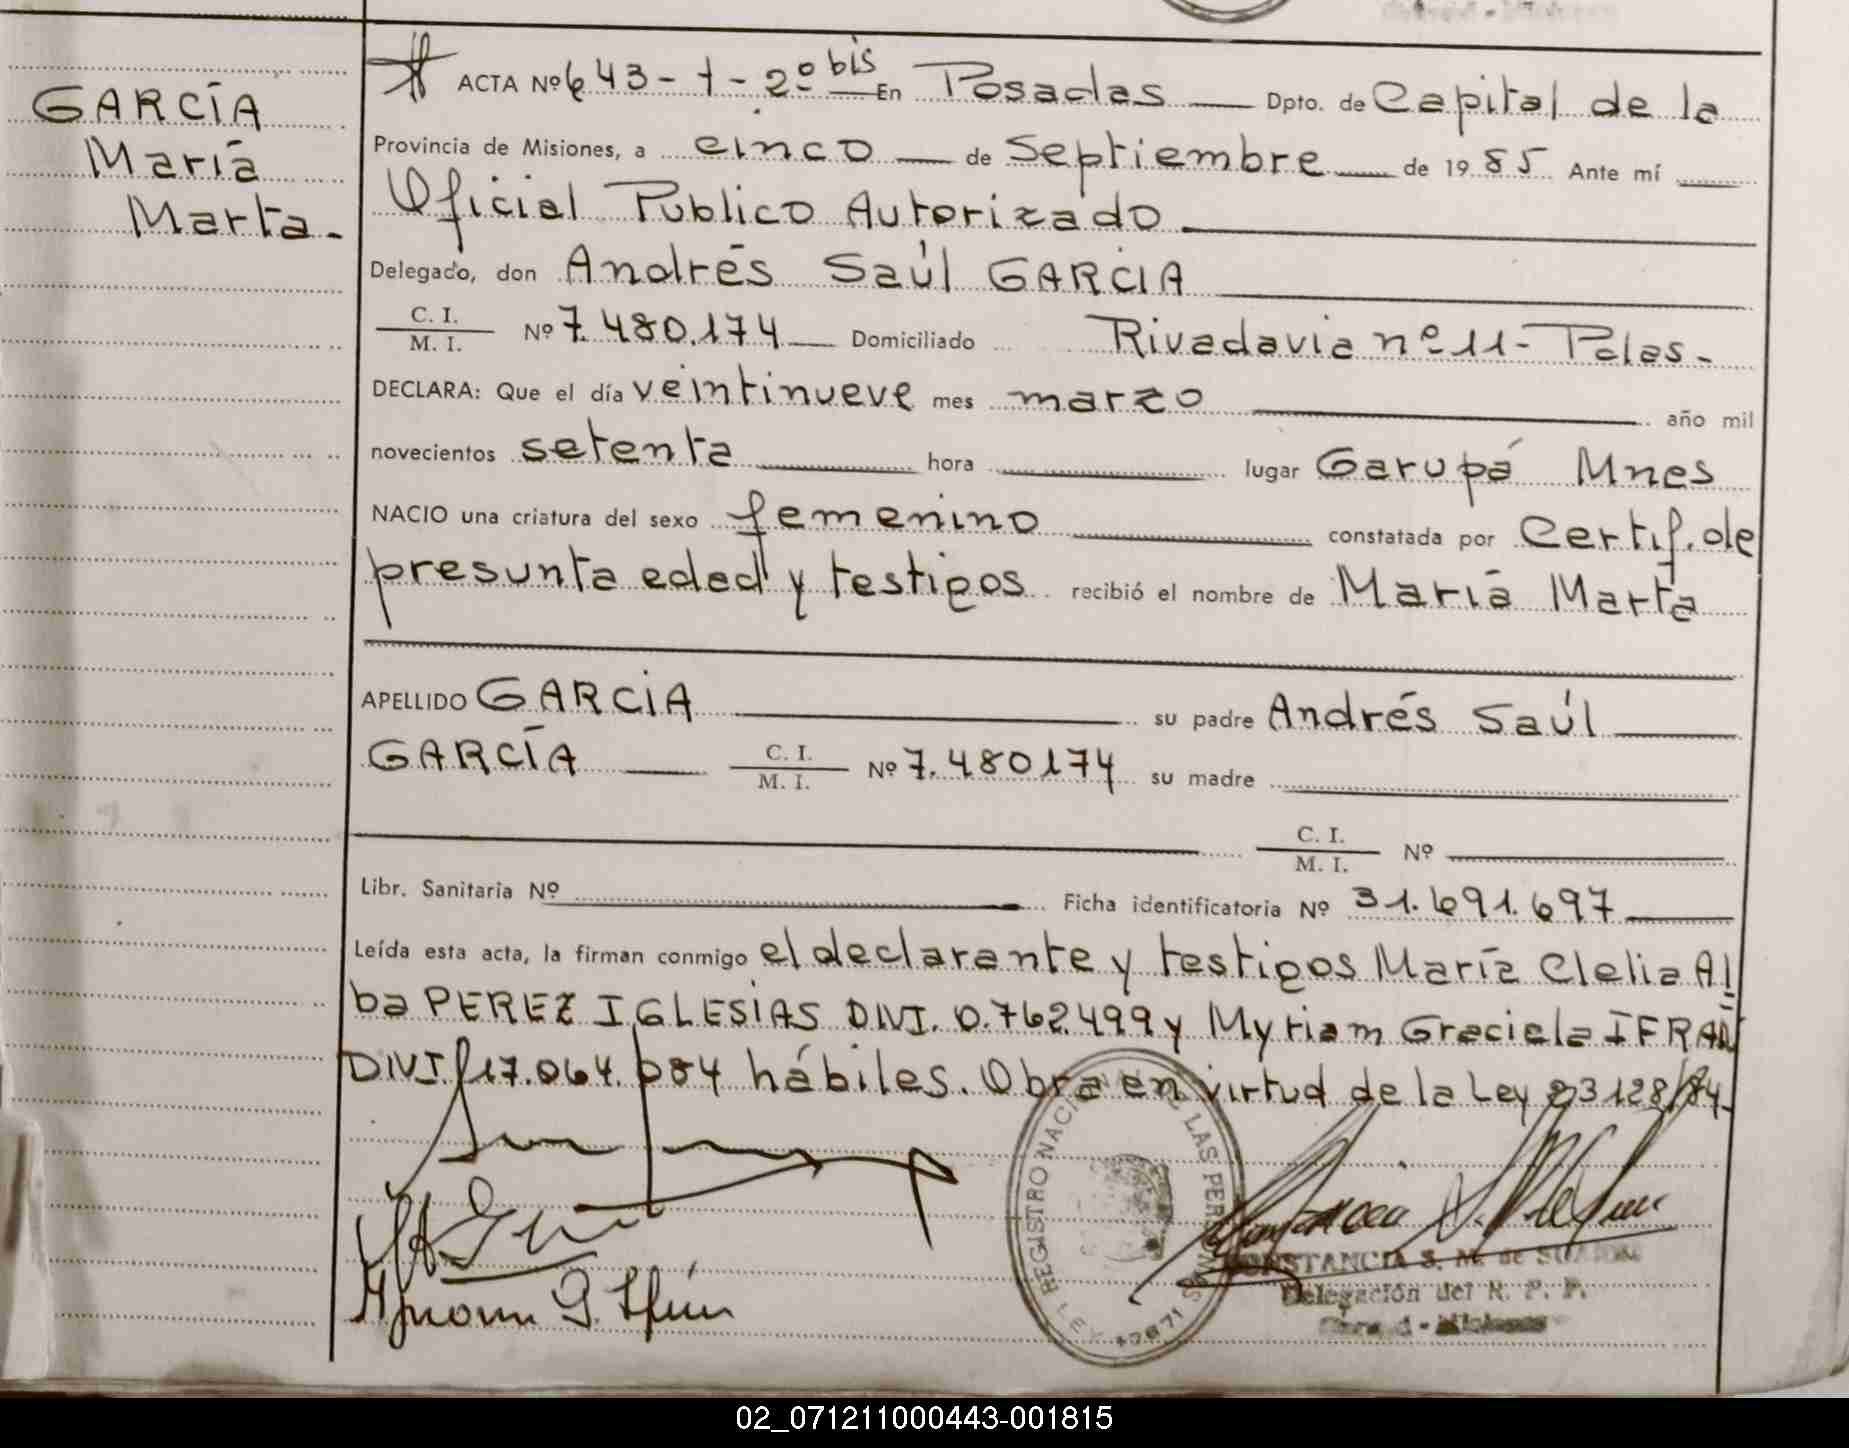 GARCÍA
María
Marta.
ACTA Nº 643-1-2º bis En Posadas Dpto. de Capital de la
Provincia de Misiones, a cinco de Septiembre de 1985 Ante mí
Oficial Publico Autorizado
Delegado, don Andrés Saúl GARCIA
C. I.
M. I. Nº 7.480.174 Domiciliado Rivadavia nº 11- Pdas.
DECLARA: Que el día veintinueve mes marzo año mil
novecientos setenta hora lugar Garupá Mnes
NACIO una criatura del sexo femenino constatada por Certif. de
presunta edad y testigos recibió el nombre de María Marta
APELLIDO GARCIA su padre Andrés Saúl
GARCÍA C. I.
M. I. Nº 7.480174 su madre
C. I.
M. I. Nº
Libr. Sanitaria Nº Ficha identificatoria Nº 31.691.697
Leída esta acta, la firman conmigo el declarante y testigos María Clelia Al
ba PEREZ IGLESIAS DNI. 0.762.499 y Myriam Graciela IFRAN
DNI 17.064.084 hábiles. Obra en virtud de la Ley 23128/84.
REGISTRO NACIONAL DE LAS PERSONAS
CONSTANCIA S. M. de
Delegación del R. P. P.
02_071211000443-001815